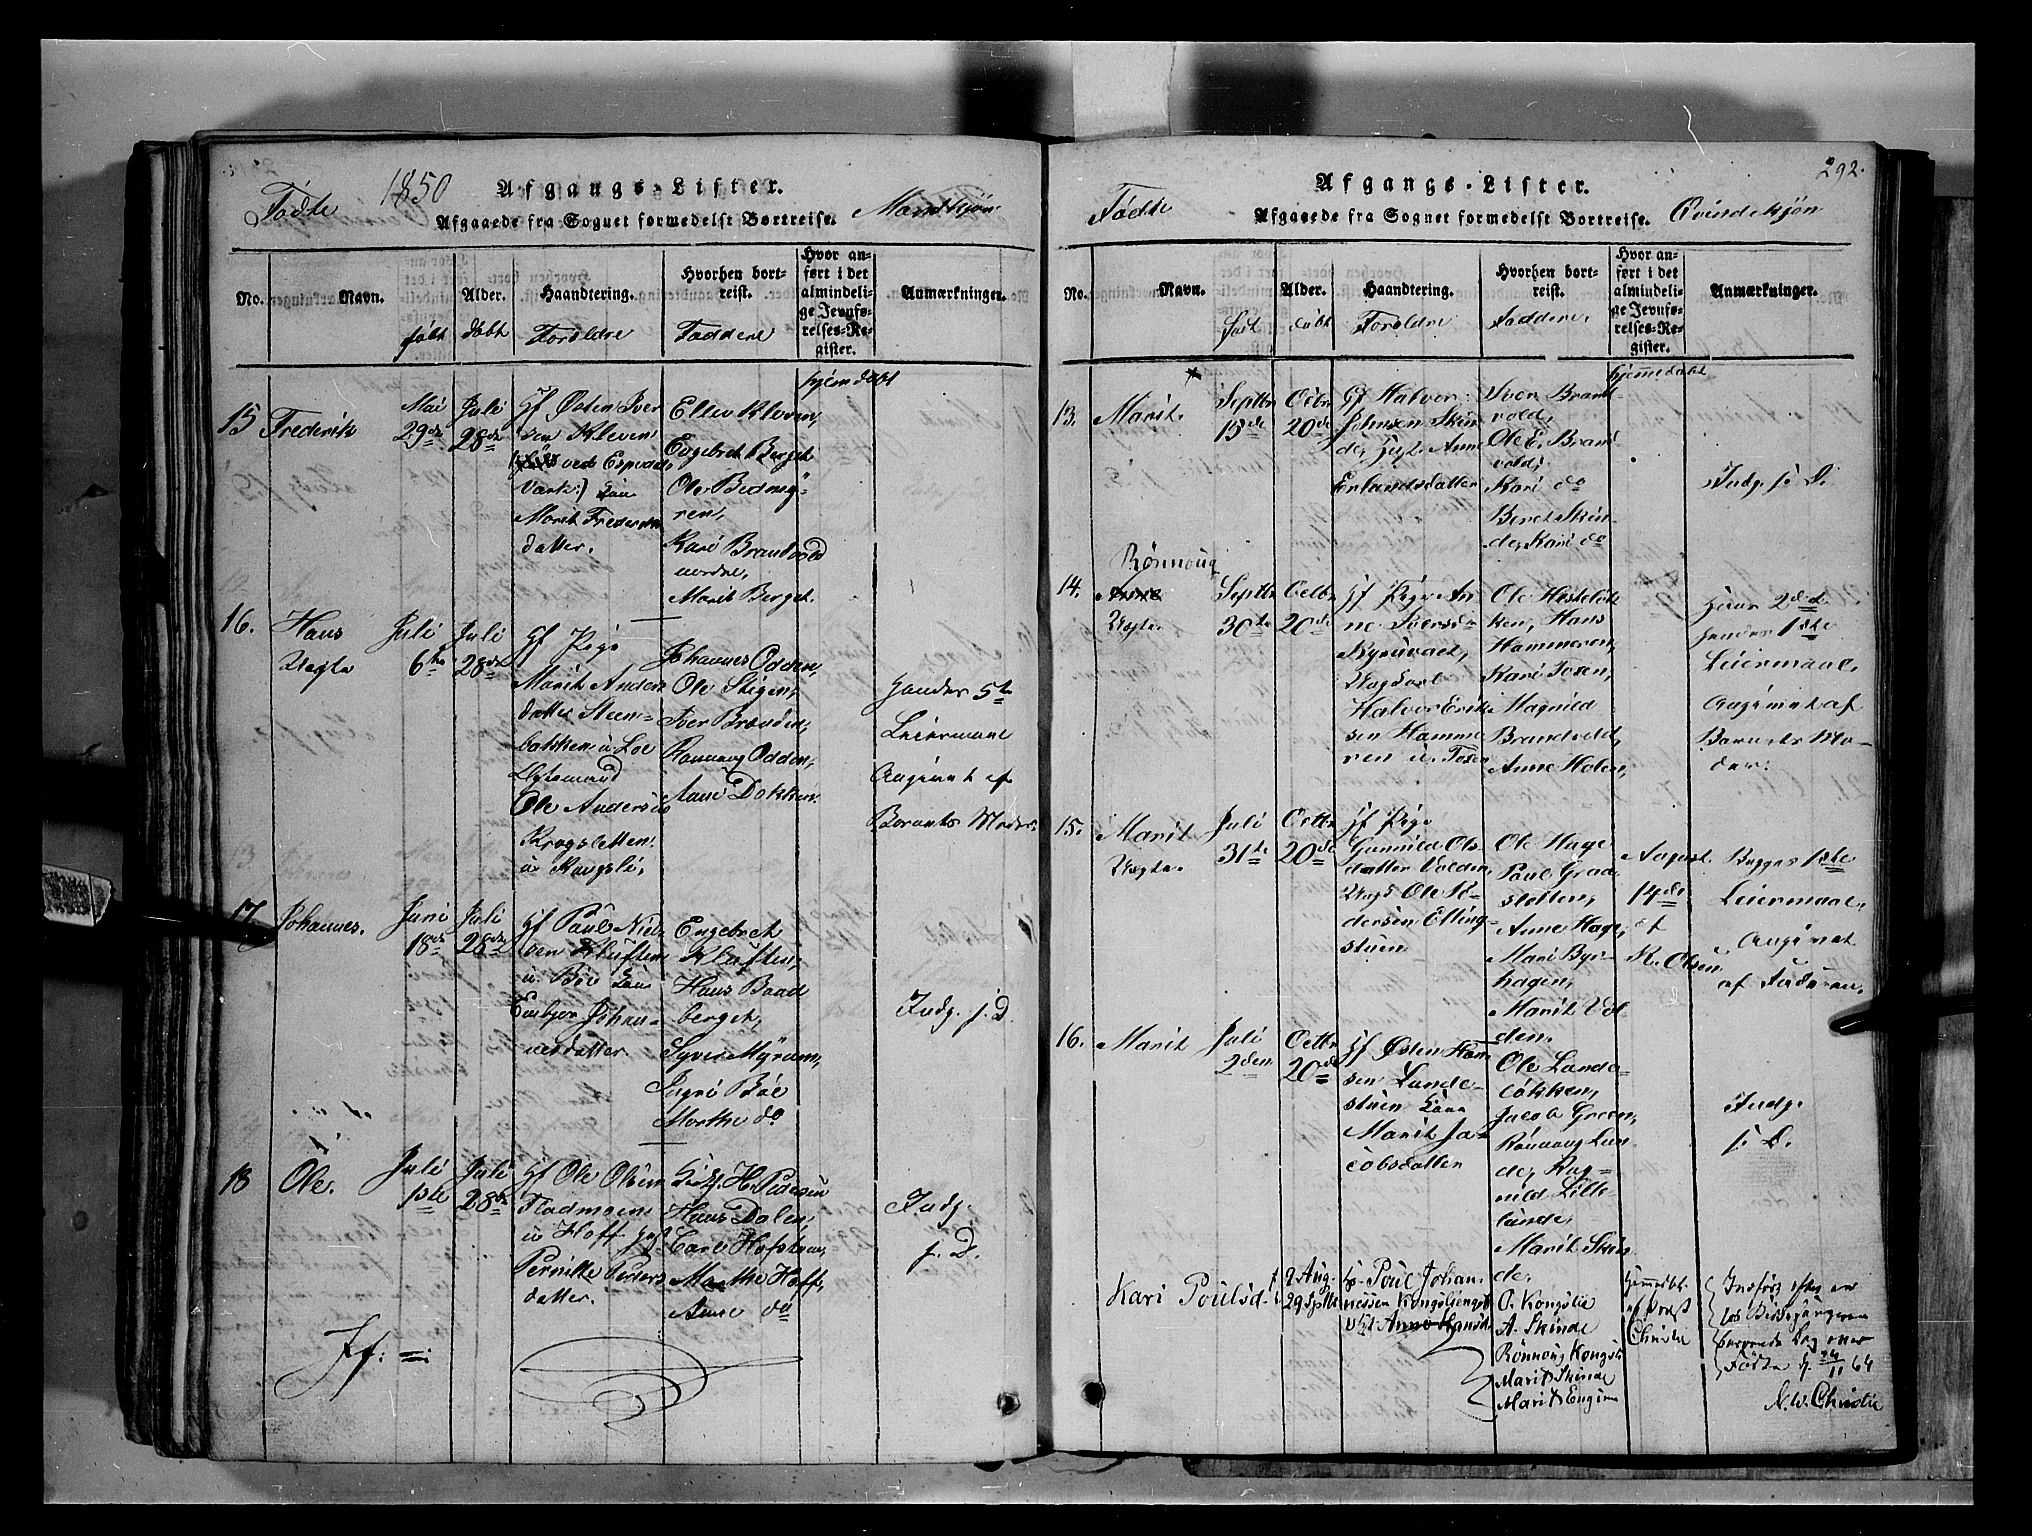 Fødte 1850 Afgangs-Lister. Mandkjøn
Afgaaede fra Sognet formedelst Bortreise.
No. Navn. født Alder. døbt Haandtering. Forældre Hvorhen bortreist. Faddere Hvor anført i det almindelige Jevnførelses-Register. hjemdøbt Anmærkninger.
15 Frederik
Mai 29de
Juli 28de
Gf Østen Iver
sen Kleven
ved Espedals
Værk:) Kone
Marit Frederiks
datter.
Elten Kleven,
Engebret Berget
Ole Bedmy-
ren,
Kari Brandvold
nerdre,
Marit Berget.
16. Hans
Uægte
Juli 6te
Juli 28de
Gf Pige
Marit Anders
datter Steen-
bakken u Loe
Ole Anderse
Krogsletten
u Kongsli,
Johannes Odden,
Ole Stigen,
Iver Brænden,
Rønnoug Odden,
Anne Dokken.
Hendes 5te
Leiermaal
Angivet af
Barnets Moder.
17 Johannes.
Juni 18de
Juli 28de
Gf Paul Niel
sen Kluften
u. Bøe Kone
Embjør Johan-
nesdatter.
Engebret
Kluften,
Hans Baad
berget,
Syver Myrum,
Ingri Bøe
Marthe do
Indg. f. D.
18 Ole.
Juli 1ste
Juli 28de
Gf Ole Olsen
Fladmoen
u Hoff
Pernille Peders
datter.
H. Pedersen
Hans Dalen
Carl Hofstuen,
Marthe Hoff,
Anne do
Indg.
f. D.
292.
Fødte Afgangs-Lister. Qvindekjøn
Afgaaede fra Sognet formedelst Bortreise.
No. Navn. født Alder. døbt Haandtering. Forældre Hvorhen bortreist. Faddere. Hvor anført i det almindelige Jevnførelses-Register. hjemmedøbt Anmærkninger.
13. Marit.
Septbr 15de
Octbr 20de
Gf Halvor
Johnsen Skin
de, Anne
Erlandsdatter
Iver Brand
vold,
Ole E. Brand
vold,
Kari do
Beret Skin-
de, Kari do
Indg. f. D.
14. Rønnoug
Anne
Uægte.
Septbr 30te
Octbr 20de
Gf Pige An
ne Iversd.
Halvor Erik
sen Hamme
ren u. Toxen
Ole Hesteløk
ken, Hans
Hammeren,
Kari Toxen,
Magnild
Brandvold,
Anne Holen,
Hans 2det
Hendes 1ste
Leiermaal.
Angivet af
Barnets Mo-
der.
15. Marit
Uægte.
Juli 31te
Octbr 20de
Gf Pige
Gunnild Ols
datter Volden,
Ungk Ole Pe-
dersen Elling-
stuen
Ole Hage
Paul Graa
sletten,
Anne Hage,
Mari Byr-
hagen,
Marit Vol
den.
August
14de
af
R. Olsen
Begges 1ste
Leiermaal.
Angivet
af Faderen.
16. Marit
Juli 2den
Octbr 20de
Gf Østen Han
sen Lande-
stuen Kone
Marit Ja-
cobsdatter
Ole Lande-
løkken,
Jacob Green,
Rønnoug Lun
de, Rag-
nild Lille-
lunde,
Marit Skin
de.
Indg.
f. D.
Kari Poulsd.
f 2 Aug.
29 Septbr
Poul Johan-
nessen Kongsliengst
Anne Hansd.
O. Kongslie
A. Skinde
Rønnoug Kongsli
Marit Skinde
Marit Engum
Hjemmedbt.
af Præst
Christie
Indført efter en
over
Fødte d. 24/11 64
N. W. Christie